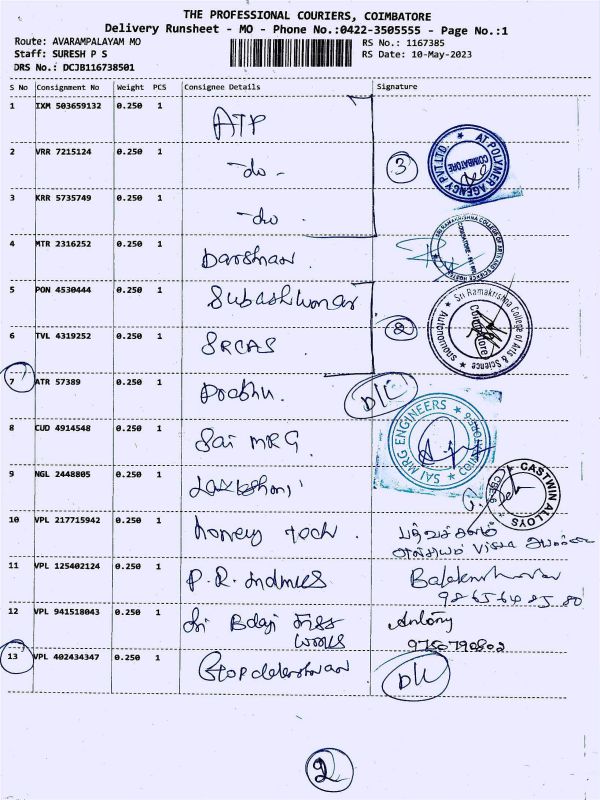 THE PROFESSIONAL COURIERS, COIMBATORE
Delivery Runsheet - MO - Phone No.:0422-3505555 - Page No.:1
Route: AVARAMPALAYAM MO
RS No.: 1167385
Staff: SURESH P S
RS Date: 10-May-2023
DRS No.: DCJB116738501
S No Consignment No Weight PCS Consignee Details Signature
1 IXM 503659132 0.250 1 ATP
2 VRR 7215124 0.250 1 -do- 3 AT POLYMER AGENCY PVT.LTD. COIMBATORE
3 KRR 5735749 0.250 1 -do-
4 MTR 2316252 0.250 1 Darshan
5 PON 4530444 0.250 1 Sri Ramakrishna College of Arts & Science Autonomous Coimbatore
6 TVL 4319252 0.250 1 SRCAS 2
7 ATR 57389 0.250 1 Prabhu. D/L
8 CUD 4914548 0.250 1 Sai MRG. SAI MRG ENGINEERS
9 NGL 2448805 0.250 1 CASTWIN ALLOYS CBE-6
10 VPL 217715942 0.250 1 honey tech.
11 VPL 125402124 0.250 1 P.R.
12 VPL 941518043 0.250 1 Sri works Antony
9750790802
13 VPL 402434347 0.250 1 D/L
2